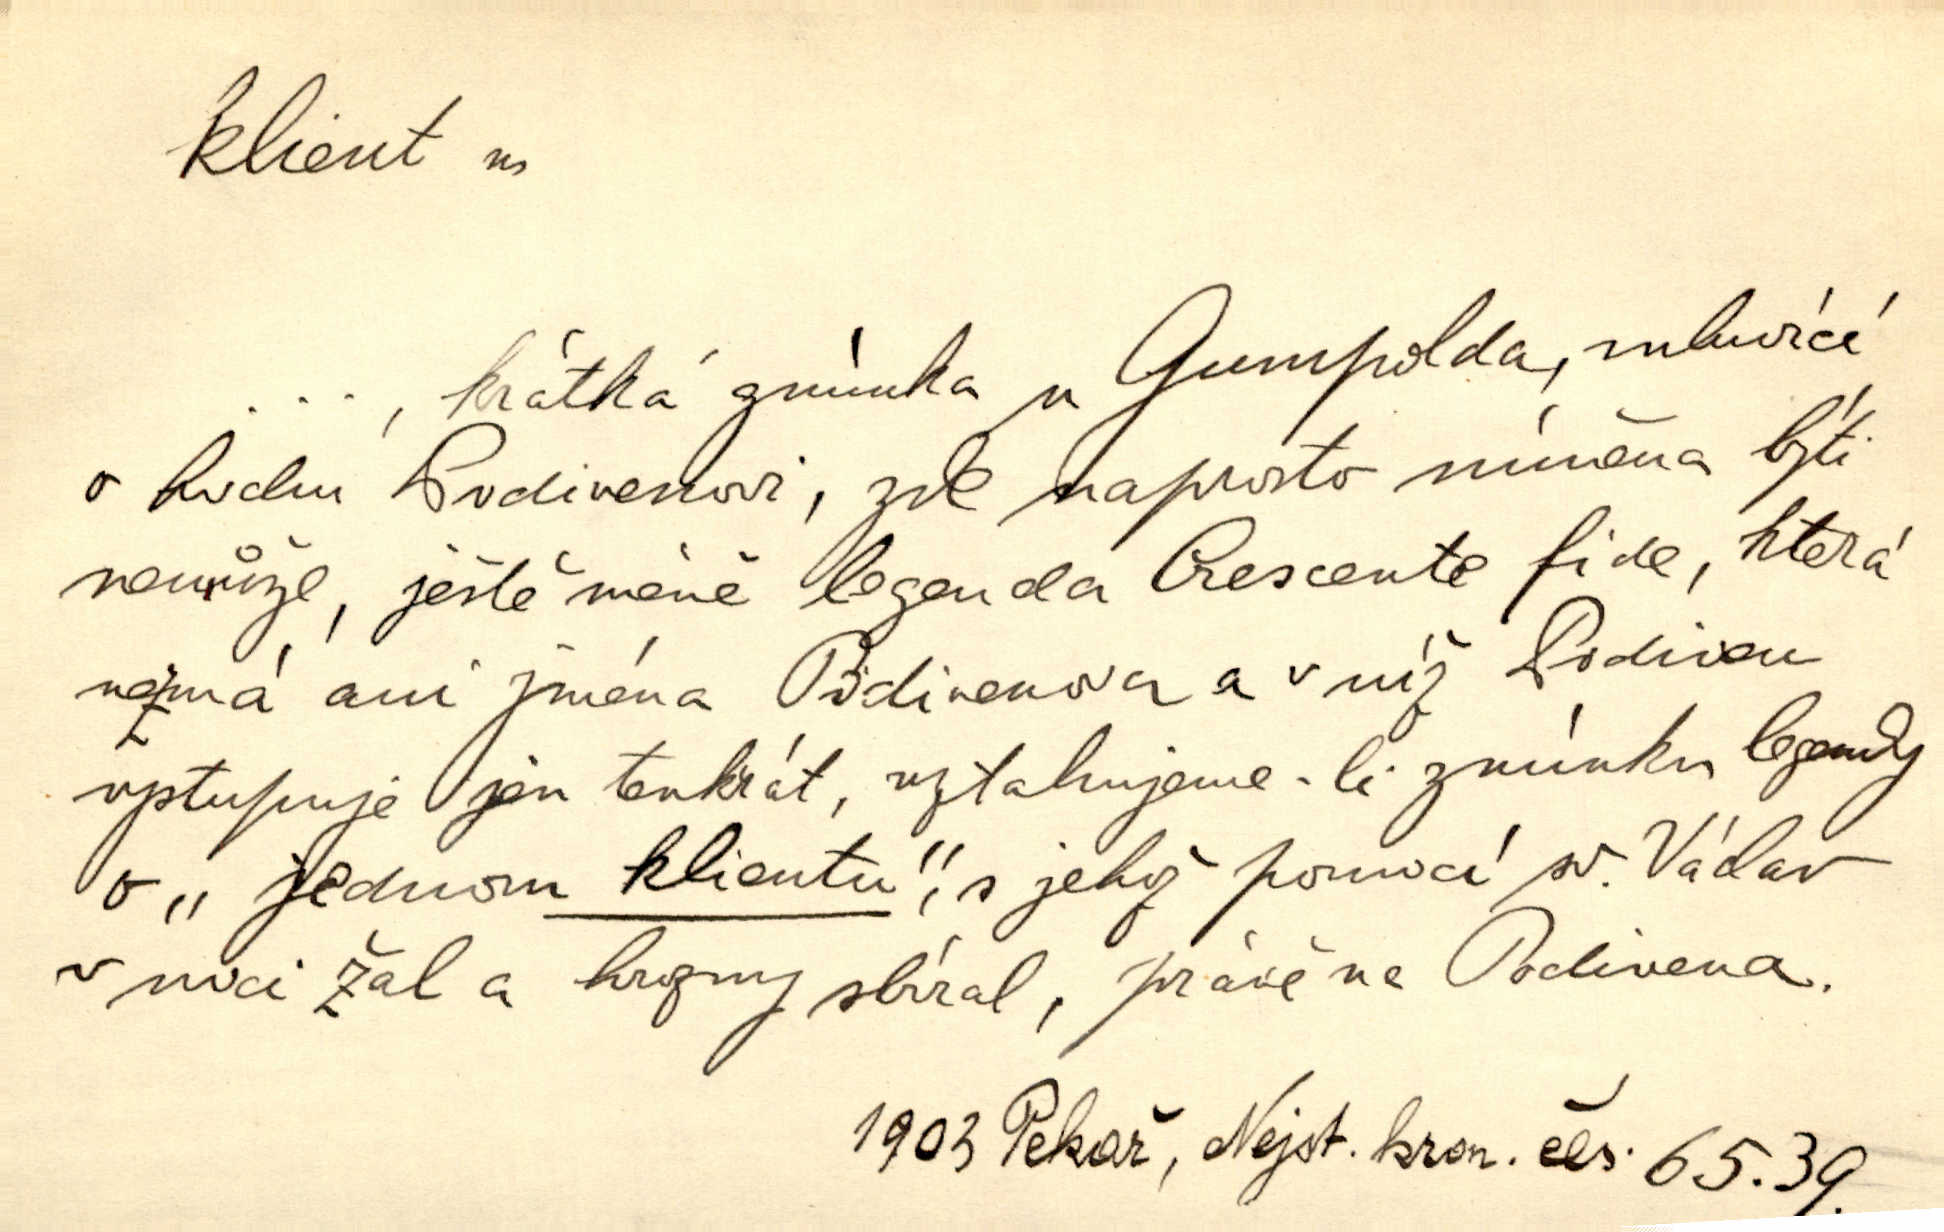 klient m
. . . , krátká zmínka u Gumpolda, mluvící
o knězi Podivenovi, zde naprosto míněna býti
nemůže, ještě méně legenda Crescente fide, která
nezná ani jména Podivenova a v níž Podiven
vystupuje jen tenkrát, vztahujeme-li zmínku legendy
o „jednom klientu", s jehož pomocí sv. Václav
v noci žal a hrozny sbíral, právě na Podivena.
1903 Pekař, Nejst. kron. čes. 65.39.